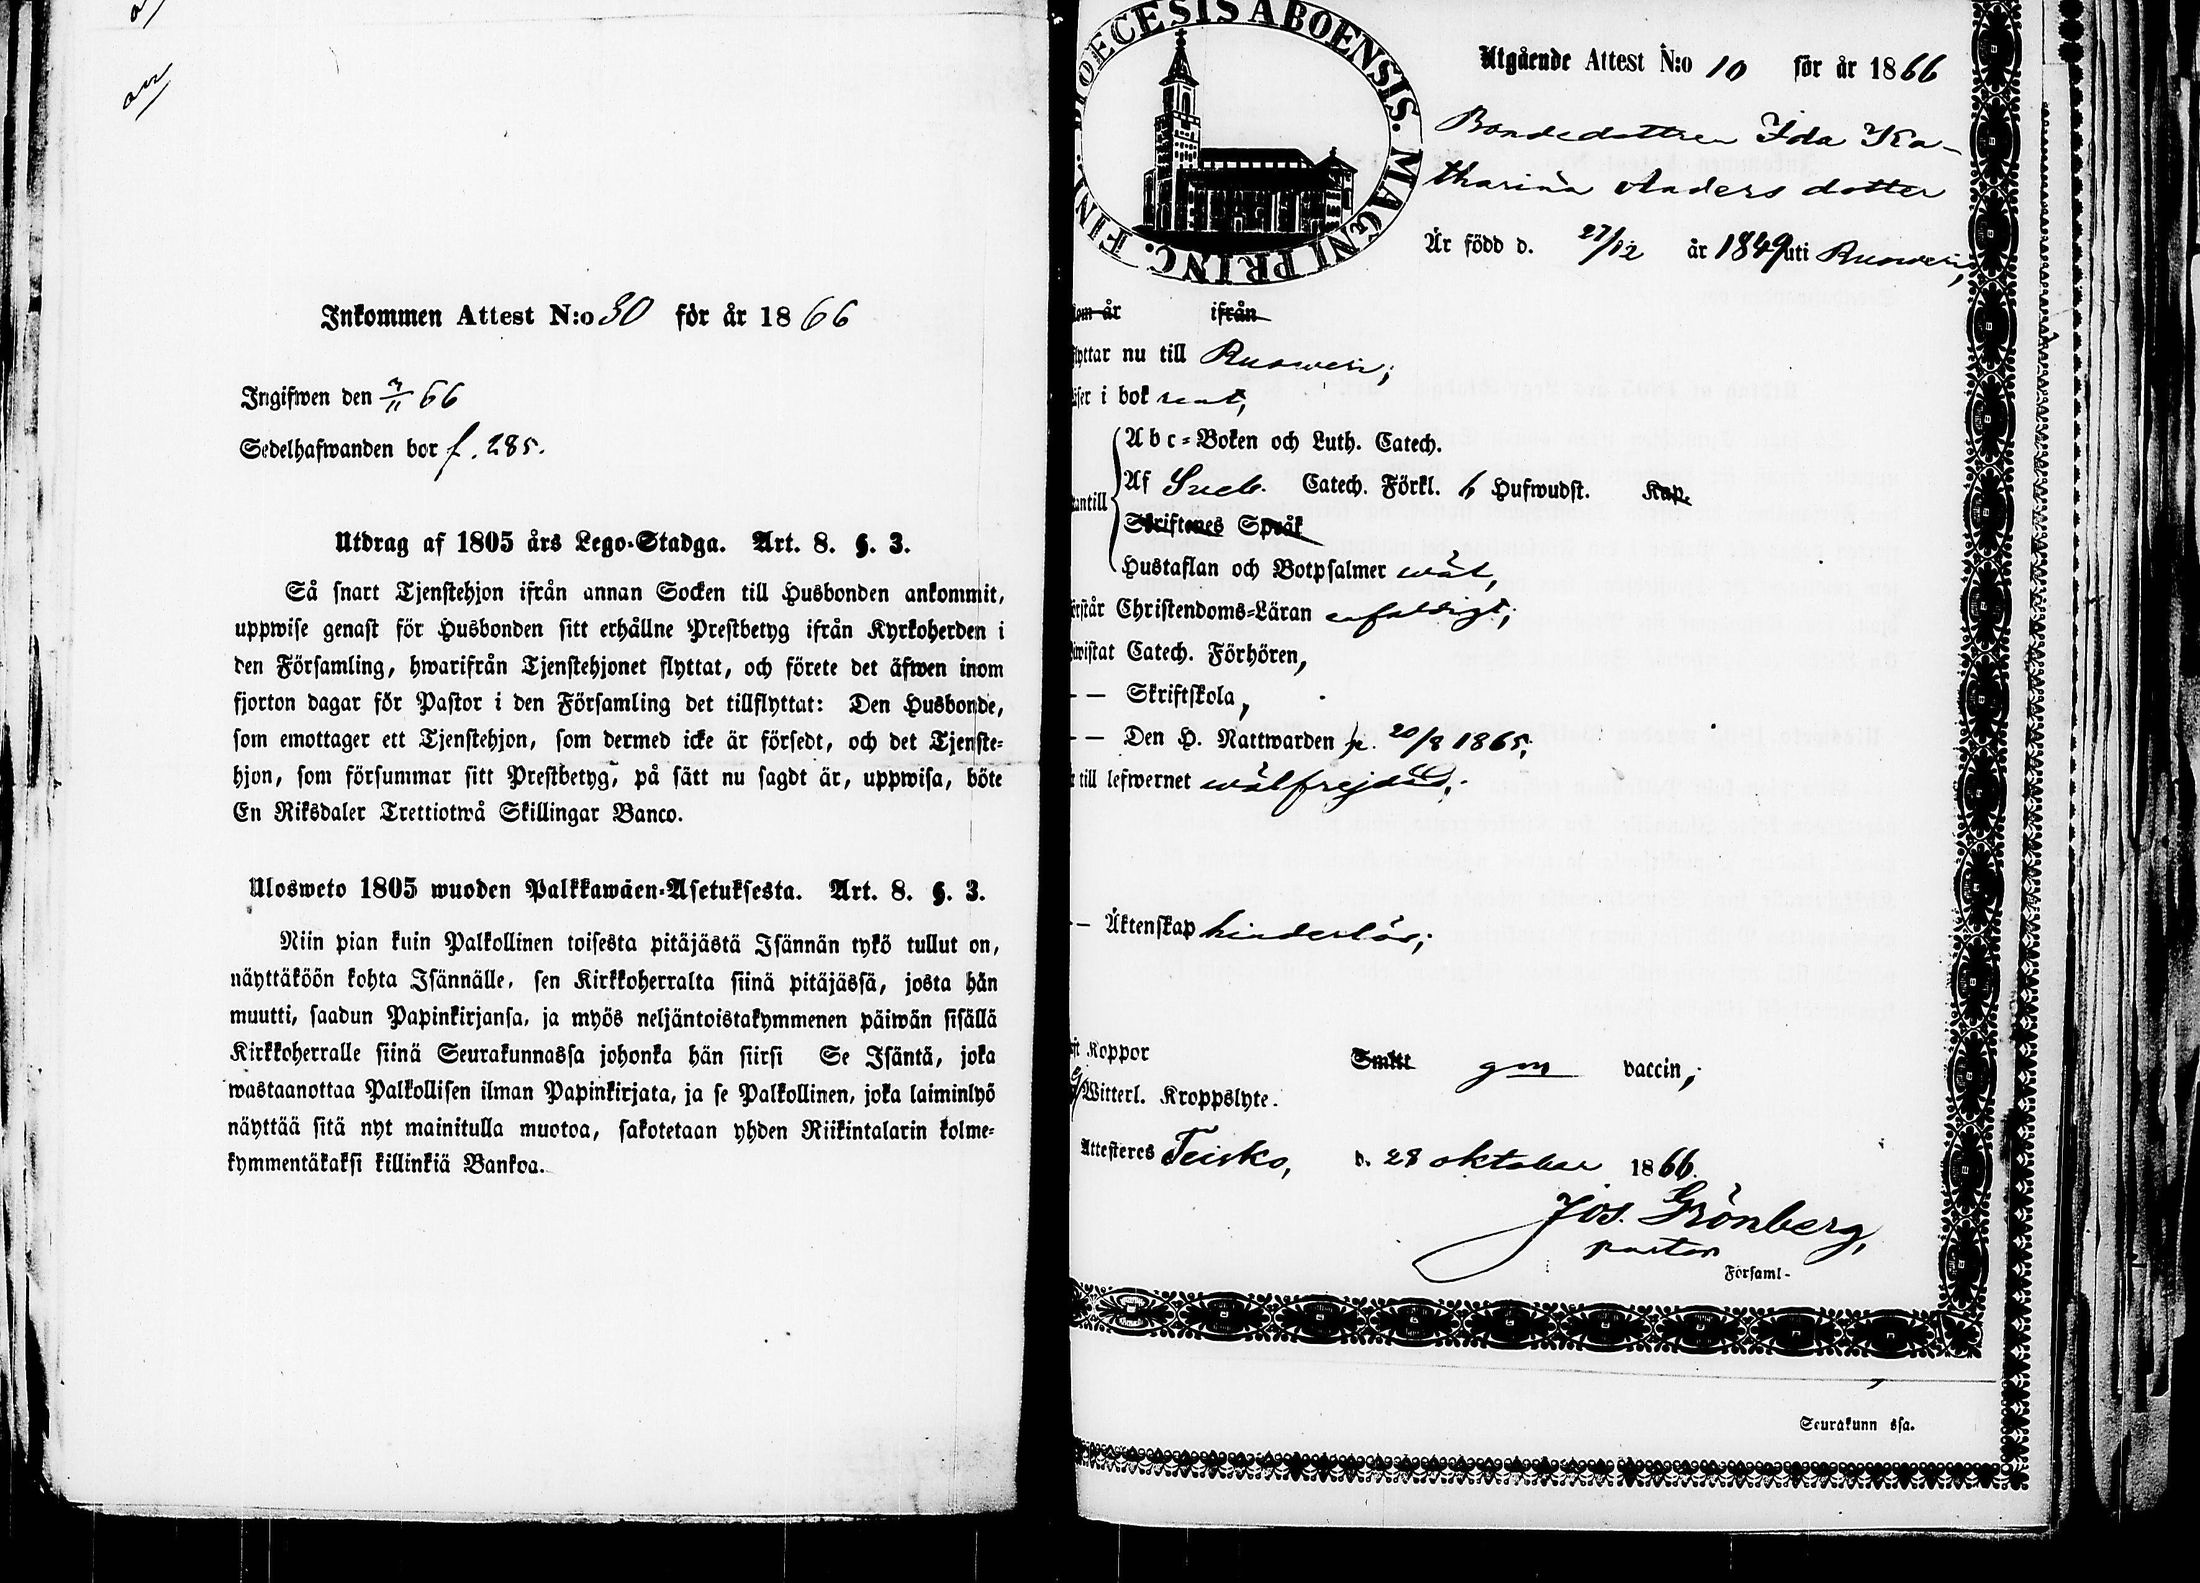 Inkommen Attest N:o 30 för år 1866
Ingifwen den 3/11 66
Sedelhafwanden bor f. 285.
Utdrag af 1805 års Lego-Stadga. Art. 8. §. 3.
Så snart Tjenstehjon ifrån annan Socken till Husbonden ankommit,
uppwise genast för Husbonden sitt erhållne Prestbetyg ifrån Kyrkoherden i
den Församling, hwarifrån Tjenstehjonet flyttat, och förete det äfwen inom
fjorton dagar för Pastor i den Församling det tillflyttat: Den Husbonde,
som emottager ett Tjenstehjon, som dermed icke är försedt, och det Tjenste-
hjon, som försummar sitt Prestbetyg, på sätt nu sagdt är, uppwisa, böte
En Riksdaler Trettiotwå Skillingar Banco.
Ulosweto 1805 wuoden Palkkawäen-Asetuksesta. Art. 8. §. 3.
Niin pian kuin Palkollinen toisesta pitäjästä Isännän tykö tullut on,
näyttäköön kohta Isännälle, sen Kirkkoherralta siinä pitäjässä, josta hän
muutti, saadun Papinkirjansa, ja myös neljäntoistakymmenen päiwän sisällä
Kirkkoherralle siinä Seurakunnassa johonka hän siirsi Se Isäntä, joka
wastaanottaa Palkollisen ilman Papinkirjata, ja se Palkollinen, joka laiminlyö
näyttää sitä nyt mainitulla muotoa, sakotetaan yhden Riikintalarin kolme-
kymmentäkaksi killinkiä Bankoa.
DIOECESIS ABOENSIS. MAGNI PRINC. FINL.
Utgående Attest N:o 10 för år 1866
Bondedottren Ida Ka-
tharina Anders dotter
Är född d. 27/12 år 1849 uti Ruowesi,
kom år ifrån
flyttar nu till Ruowesi;
läser i bok rent,
Abc-Boken och Luth. Catech.
Af Sveb. Catech. Förkl. 6 Hufwudst. Kap.
utantill
Skriftenes Språk
Hustaflan och Botpsalmer wäl,
förstår Christendoms-Läran enfaldigt;
biwistat Catech. Förhören,
— — Skriftskola,
— — Den H. Nattwarden p. 20/8 1865;
är till lefwernet wälfrejdad;
— Äktenskap hinderlös;
haft Koppor Smitt gm vaccin;
ej Witterl. Kroppslyte.
Attesteres Teisko, d. 28 oktober 1866.
Jos. Grönberg,
pastor
Församl-
Seurakunn ssa.